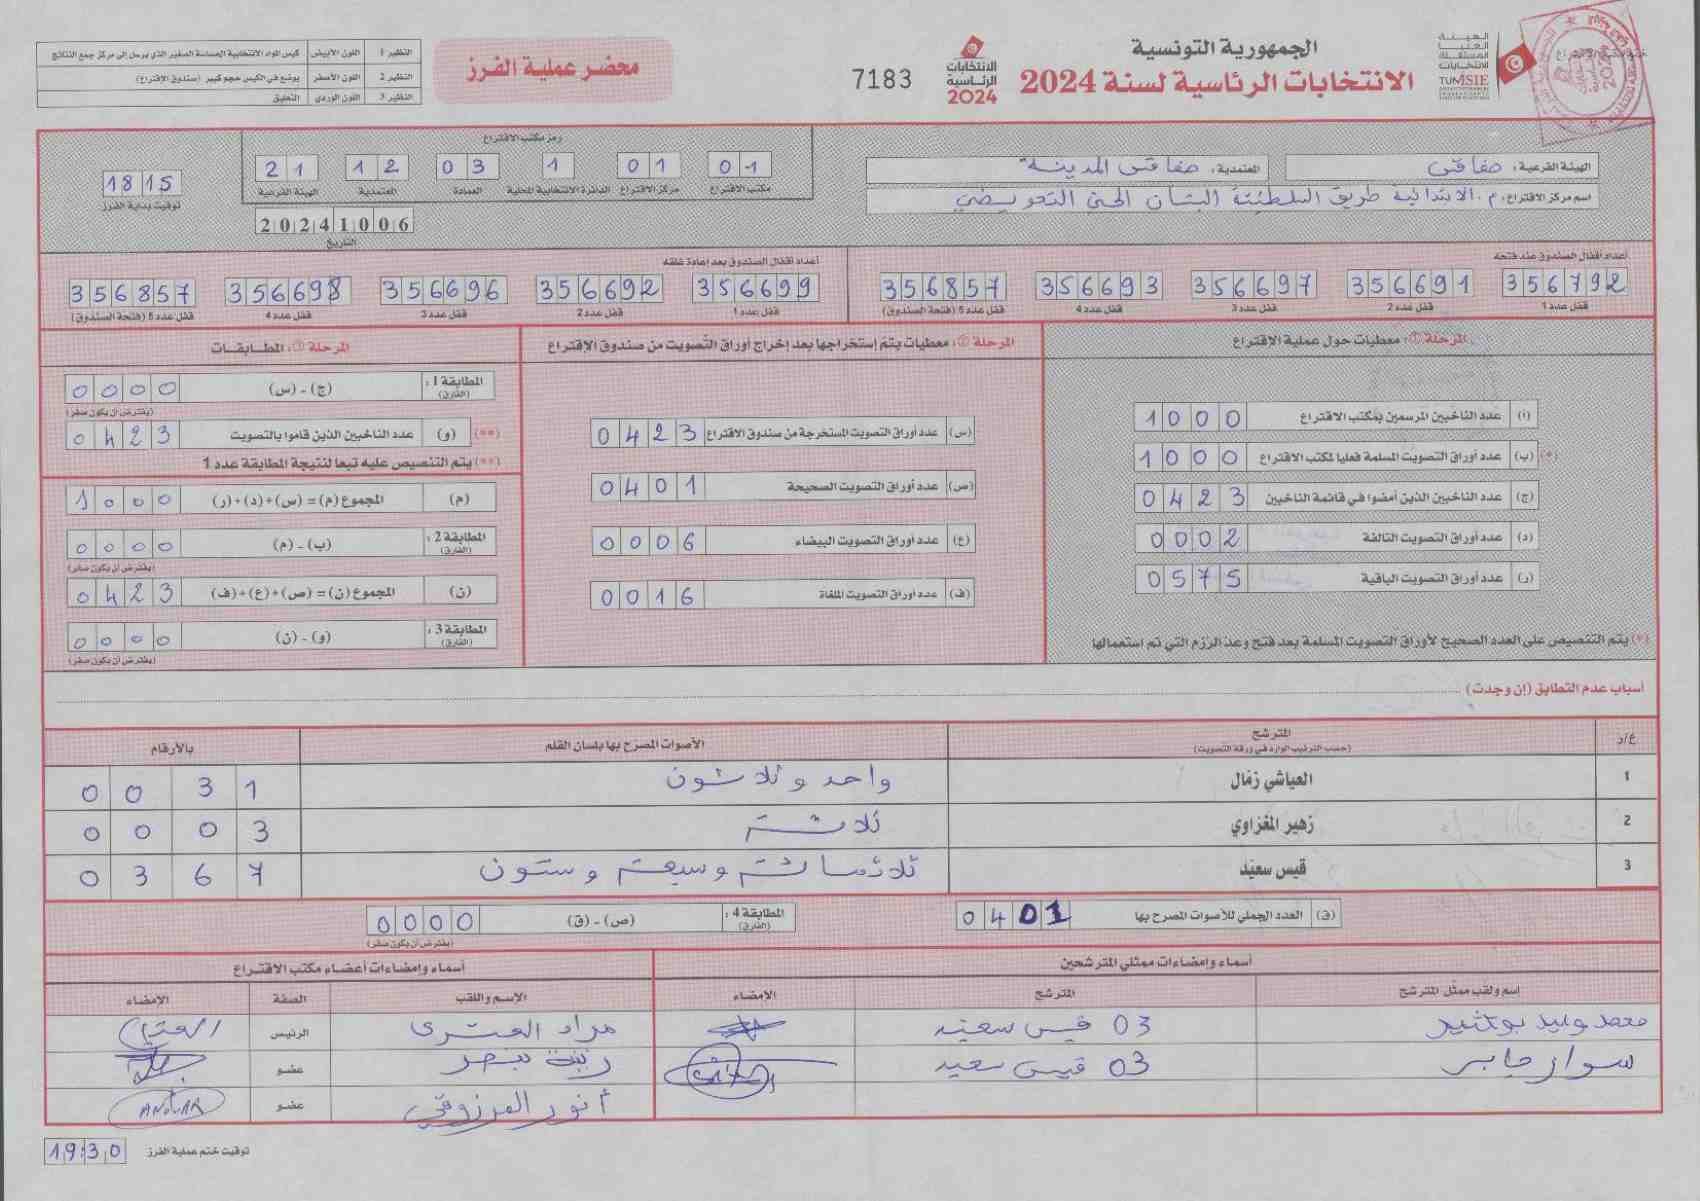 الجمهورية التونسية
الانتخابات الرئاسية لسنة 2024
الهيئة
العليا
المستقلة
للانتخابات
TUNISIE
الانتخابات
الرئاسية
2024
7183
محضر عملية الفرز
النظير 1 اللون الأبيض كيس المواد الانتخابية الحساسة الصغير الذي يرسل إلى مركز جمع النتائج
النظير 2 اللون الأصفر يوضع في الكيس حجم كبير (صندوق الإقتراع)
النظير 3 اللون الوردي التعليق
الهيئة الفرعية: صفاقس
المعتمدية: صفاقس المدينة
اسم مركز الاقتراع: م. الابتدائية طريق السلطنية البستان الحي التعويضي
رمز مكتب الاقتراع
01 01 1 03 12 21
مكتب الاقتراع مركز الاقتراع الدائرة الانتخابية المحلية العمادة المعتمدية الهيئة الفرعية
20241006
التاريخ
1815
توقيت بداية الفرز
أعداد أقفال الصندوق عند فتحه
356792 356691 356697 356693 356857
قفل عدد 1 قفل عدد 2 قفل عدد 3 قفل عدد 4 قفل عدد 5 (فتحة الصندوق)
أعداد أقفال الصندوق بعد إعادة غلقه
356699 356692 356696 356698 356857
قفل عدد 1 قفل عدد 2 قفل عدد 3 قفل عدد 4 قفل عدد 5 (فتحة الصندوق)
المرحلة ①: معطيات حول عملية الاقتراع
(أ) عدد الناخبين المرسمين بمكتب الاقتراع 1000
(*) (ب) عدد أوراق التصويت المسلمة فعليا لمكتب الاقتراع 1000
(ج) عدد الناخبين الذين أمضوا في قائمة الناخبين 0423
(د) عدد أوراق التصويت التالفة 0002
(ر) عدد أوراق التصويت الباقية 0575
(*) يتم التنصيص على العدد الصحيح لأوراق التصويت المسلمة بعد فتح وعد الرزم التي تم استعمالها
المرحلة ②: معطيات يتم إستخراجها بعد إخراج أوراق التصويت من صندوق الإقتراع
(س) عدد أوراق التصويت المستخرجة من صندوق الاقتراع 0423
(ص) عدد أوراق التصويت الصحيحة 0401
(ع) عدد أوراق التصويت البيضاء 0006
(ف) عدد أوراق التصويت الملغاة 0016
المرحلة ③: المطابقات
المطابقة 1: (الفارق) (ج) - (س) 0000
(يفترض أن يكون صفر)
(**) (و) عدد الناخبين الذين قاموا بالتصويت 0423
(**) يتم التنصيص عليه تبعا لنتيجة المطابقة عدد 1
(م) المجموع (م) = (س)+(د)+(ر) 1000
المطابقة 2: (الفارق) (ب) - (م) 0000
(يفترض أن يكون صفر)
(ن) المجموع (ن) = (ص)+(ع)+(ف) 0423
المطابقة 3: (الفارق) (و) - (ن) 0000
(يفترض أن يكون صفر)
أسباب عدم التطابق (إن وجدت)
ع/ر المترشح الأصوات المصرح بها بلسان القلم بالأرقام
(حسب الترتيب الوارد في ورقة التصويت)
1 العياشي زمال واحد وثلاثون 0031
2 زهير المغزاوي ثلاثة 0003
3 قيس سعيّد ثلاثمائة وسبعة وستون 0367
(ق) العدد الجملي للأصوات المصرح بها 0401
المطابقة 4: (الفارق) (ص) - (ق) 0000
(يفترض أن يكون صفر)
أسماء وإمضاءات ممثلي المترشحين
اسم ولقب ممثل المترشح المترشح الإمضاء
محمد وليد بوكثير 03 قيس سعيد
سوار جابر 03 قيس سعيد
أسماء وإمضاءات أعضاء مكتب الاقتراع
الإسم واللقب الصفة الإمضاء
مراد العشري الرئيس
عضو
أنور المرزوقي عضو ANOUAR
19:30 توقيت ختم عملية الفرز